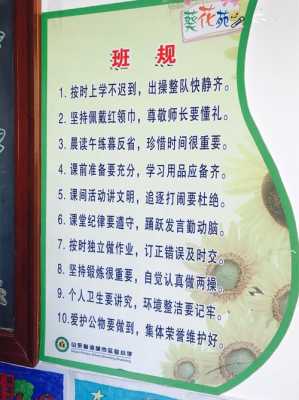 葵花苑
班 规
1、按时上学不迟到，出操整队快静齐。
2、坚持佩戴红领巾，尊敬师长要懂礼。
3、晨读午练暮反省，珍惜时间很重要。
4、课前准备要充分，学习用品应备齐。
5、课间活动讲文明，追逐打闹要杜绝。
6、课堂纪律要遵守，踊跃发言勤动脑。
7、按时独立做作业，订正错误及时交。
8、坚持锻炼很重要，自觉认真做两操。
9、个人卫生要讲究，环境整洁要记牢。
10、爱护公物要做到，集体荣誉维护好。